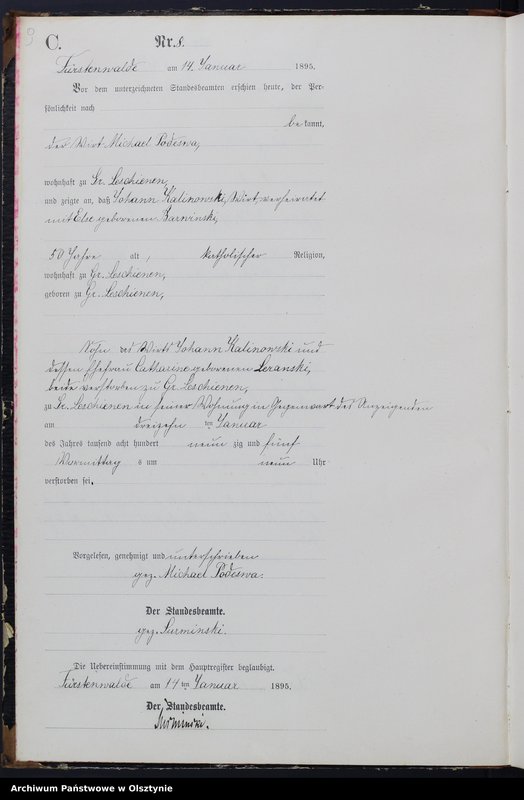 9
C.
Nr. 8.
Fürstenwalde am 14. Januar 1895.
Vor dem unterzeichneten Standesbeamten erschien heute, der Per-
sönlichkeit nach
bekannt,
der Wirt Michael Podeswa,
wohnhaft zu Gr. Leschienen,
und zeigte an, daß Johann Kalinowski, Wirt, verheiratet
mit Else geborenen Barwinski,
50 Jahre alt, katholischer Religion,
wohnhaft zu Gr. Leschienen,
geboren zu Gr. Leschienen,
Sohn des Wirts Johann Kalinowski und
dessen Ehefrau Catharine geborenen Leranski,
beide verstorben zu Gr. Leschienen,
zu Gr. Leschienen in seiner Wohnung in Gegenwart des Anzeigenden
am dreizehn ten Januar
des Jahres tausend acht hundert neun zig und fünf
Vormittag s um neun Uhr
verstorben sei.
Vorgelesen, genehmigt und unterschrieben
gez. Michael Podeswa.
Der Standesbeamte.
gez. Surminski.
Die Uebereinstimmung mit dem Hauptregister beglaubigt.
Fürstenwalde am 14 ten Januar 1895.
Der Standesbeamte.
Surminski.
Archiwum Państwowe w Olsztynie